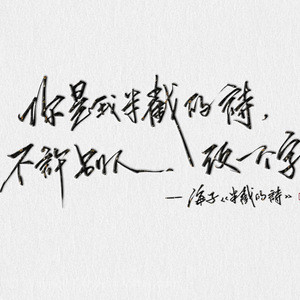 你是我半截的詩，
不許别人改一个字
—海子《半截的詩》